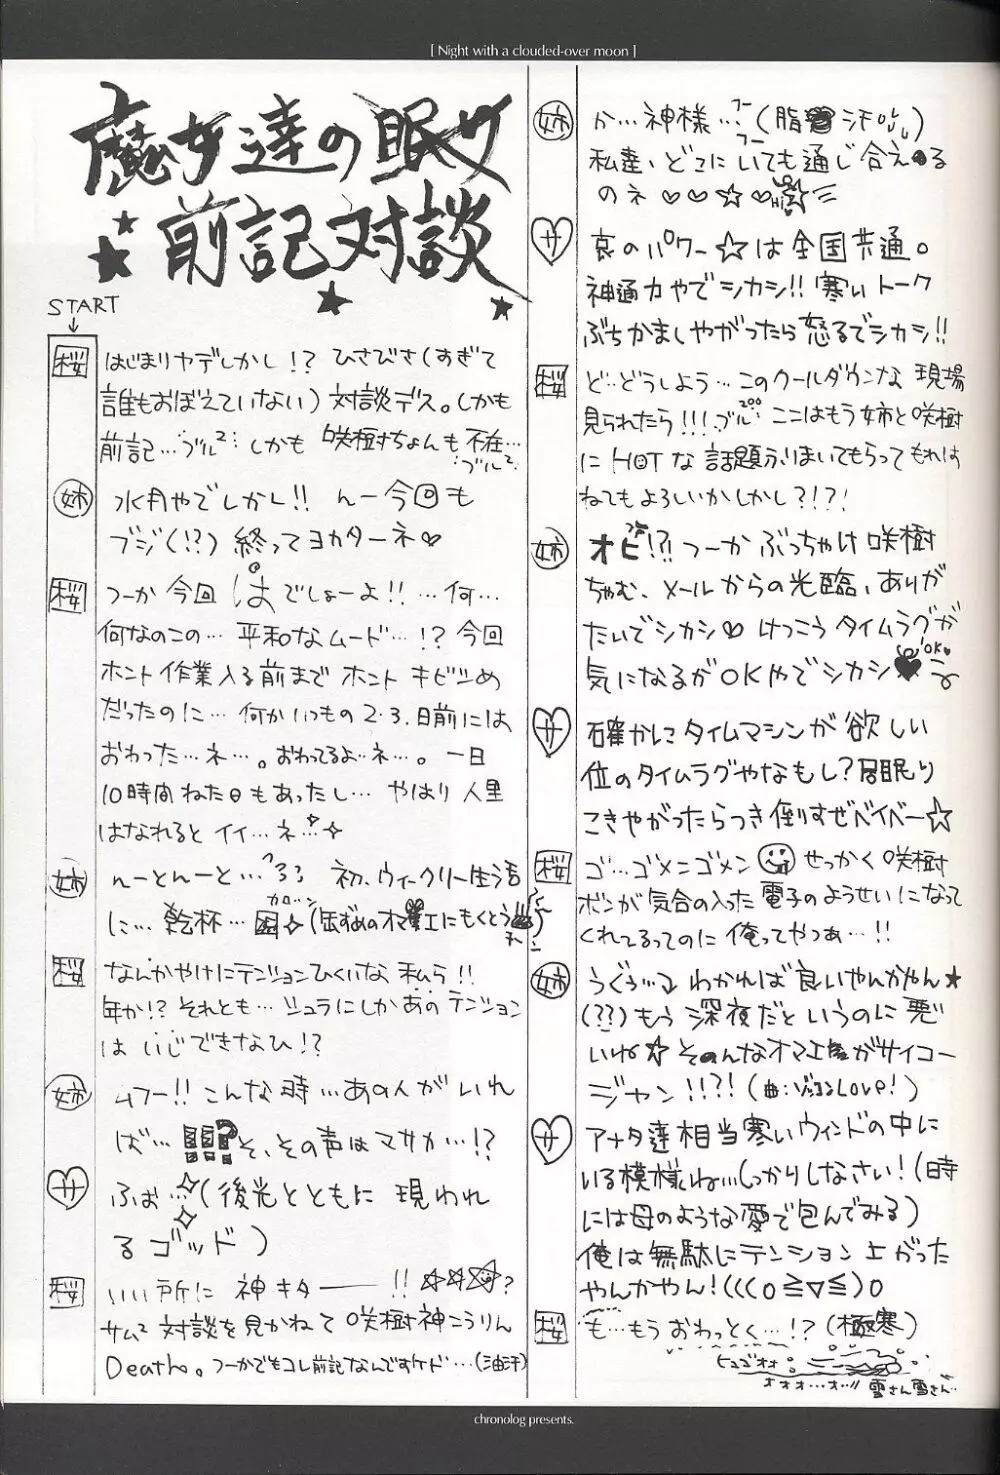 [ Night with a clouded-over moon ]
魔女達の眠り
前記対談
START
桜 はじまりヤデしかし!? ひさびさ(すぎて
誰もおぼえていない) 対談デス。しかも
前記…ブル² しかも 咲樹ちょんも不在…
ブル²
姉 水月やでしかし!! んー今回も
ブジ(!?) 終ってヨカターネ♡
桜 つーか今回はでしょーよ!! …何…
何なのこの… 平和なムード…!? 今回
ホント作業入る前まで ホント キビシめ
だったのに… 何かいつもの2・3.日前には
おわった…ネ…。おわってるよ…ネ…。一日
10時間ねた日もあったし… やはり 人里
はなれると イイ…ネ…
姉 んーとんーと… 初、ウィークリー生活
に… 乾杯… カローン
桜 なんかやけにテンションひくいな 私ら!!
年か!? それとも… シュラにしかあのテンション
は いじできなひ!?
姉 ムフー!! こんな時…あの人がいれ
ば… !!!? そ、その声はマサカ…!?
サ ふぉ…(後光とともに 現われ
るゴッド)
桜 いい所に 神キター――!! ☆☆☆?
サム² 対談を見かねて 咲樹神こうりん
Death。つーかでもコレ前記なんですケド…(油汗)
姉 か…神様…(脂汗)
フー
フー
私達、どこにいても通じ合える
のネ ♡♡☆♡
Hi
サ 哀のパワー☆は全国共通。
神通力やでシカシ!! 寒いトーク
ぶちかましやがったら怒るでシカシ!!
桜 ど…どうしよう…このクールダウンな 現場
見られたら!!!ブル²⁰⁰ ここはもう姉と咲樹
にHOTな話題ふりまいてもらってもれは
ねてもよろしいかしかし?!?!
姉 オビ!?! つーか ぶっちゃけ咲樹
ちゃむ、メールからの光臨、ありが
たいでシカシ♡ けっこうタイムラグが
気になるがOKやでシカシ♥
OK♥
サ 確かにタイムマシンが欲しい
位のタイムラグやなもし?居眠り
こきやがったらつき倒すぜベイベー☆
桜 ゴ…ゴメニゴメン せっかく咲樹
ボンが気合の入った電子のようせいになって
くれてるってのに俺ってやつぁ…!!
姉 うぐぅ… わかれば良いやんかやん★
(??)もう深夜だというのに悪
いね☆ そのんなオマエ達がサイコー
ジャン!!?!
サ アナタ達相当寒いウィンドの中に
いる模様ね…しっかりしなさい!(時
には母のような愛で包んでみる)
俺は無駄にテンション上がった
やんかやん!(((o≧▽≦)o
桜 も…もうおわっとく…!?(極寒)
ヒュゴオォ。
オオオ…オ…!! 雪さん雪さん…
chronolog presents.